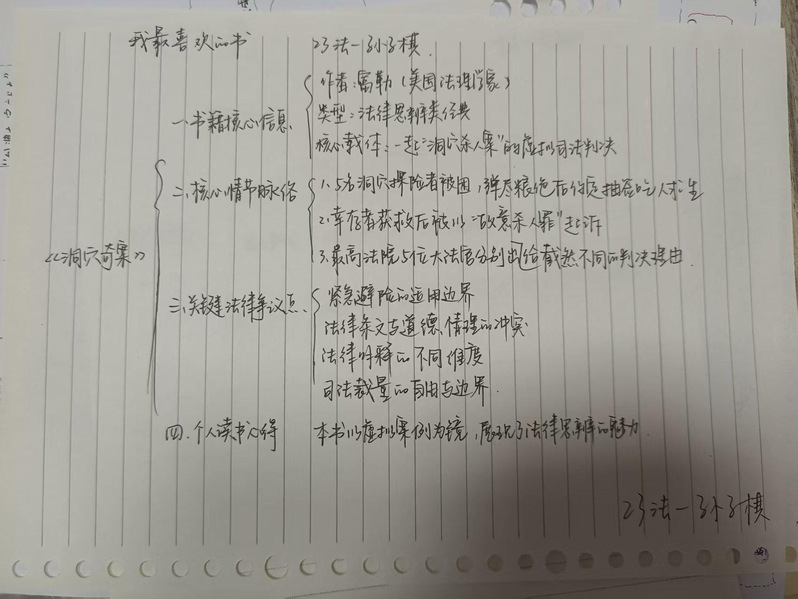 我最喜欢的书 23法一 孙子棋.
一.书籍核心信息.
作者:富勒(美国法理学家)
类型:法律思辨类经典
核心载体:一起"洞穴杀人案"的虚拟司法判决
二.核心情节脉络
1.5名洞穴探险者被困,弹尽粮绝后约定抽签吃人求生
2.幸存者获救后被以"故意杀人罪"起诉
3.最高法院5位大法官分别给出截然不同的判决理由.
《洞穴奇案》
三.关键法律争议点.
紧急避险的适用边界
法律条文与道德、情理的冲突.
法律解释的不同维度
司法裁量的自由与边界.
四.个人读书心得 本书以虚拟案例为镜,展现了法律思辨的魅力.
23法一 孙子棋